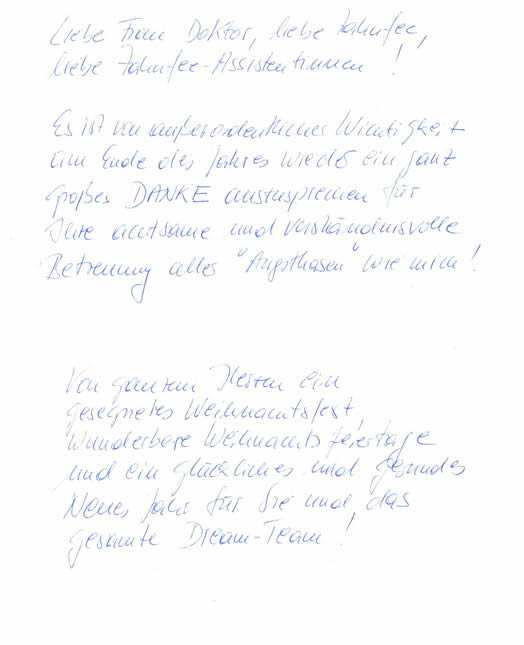 Liebe Frau Doktor, liebe Zahnfee,
liebe Zahnfee-Assistentinnen!
Es ist von außerordentlicher Wichtigkeit
am Ende des Jahres wieder ein ganz
großes DANKE auszusprechen für
Ihre achtsame und verständnisvolle
Betreuung aller "Angsthasen" wie mich!
Von ganzem Herzen ein
gesegnetes Weihnachtsfest,
wunderbare Weihnachtsfeiertage
und ein glückliches und gesundes
Neues Jahr für Sie und das
gesamte Dream-Team!